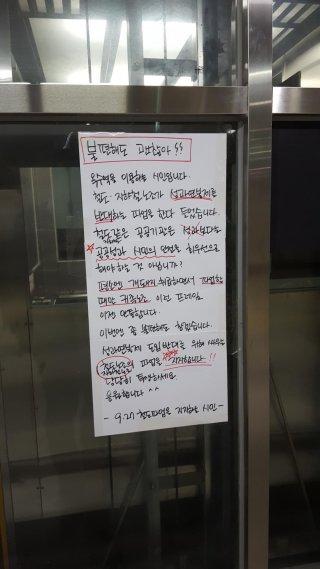 불편해도 괜찮아!!
옥수역을 이용하는 시민입니다.
철도 지하철노조가 성과연봉제를
반대하는 파업을 한다 들었습니다.
철도같은 공공기관은 성과보다는
공공성과 시민의 안전을 최우선으로
해야 하는 것 아닙니까?
취급하면서 파업할
때만 이런 프레임
이제 안통합니다.
이번엔 좀 불편해도 참겠습니다.
성과연봉제 도입반대를 위해 싸우는
철도노조의 파업을 지지합니다!!
당당히 투쟁하세요
응원합니다 ^^
- 9.27 철도파업을 지지하는 시민 -